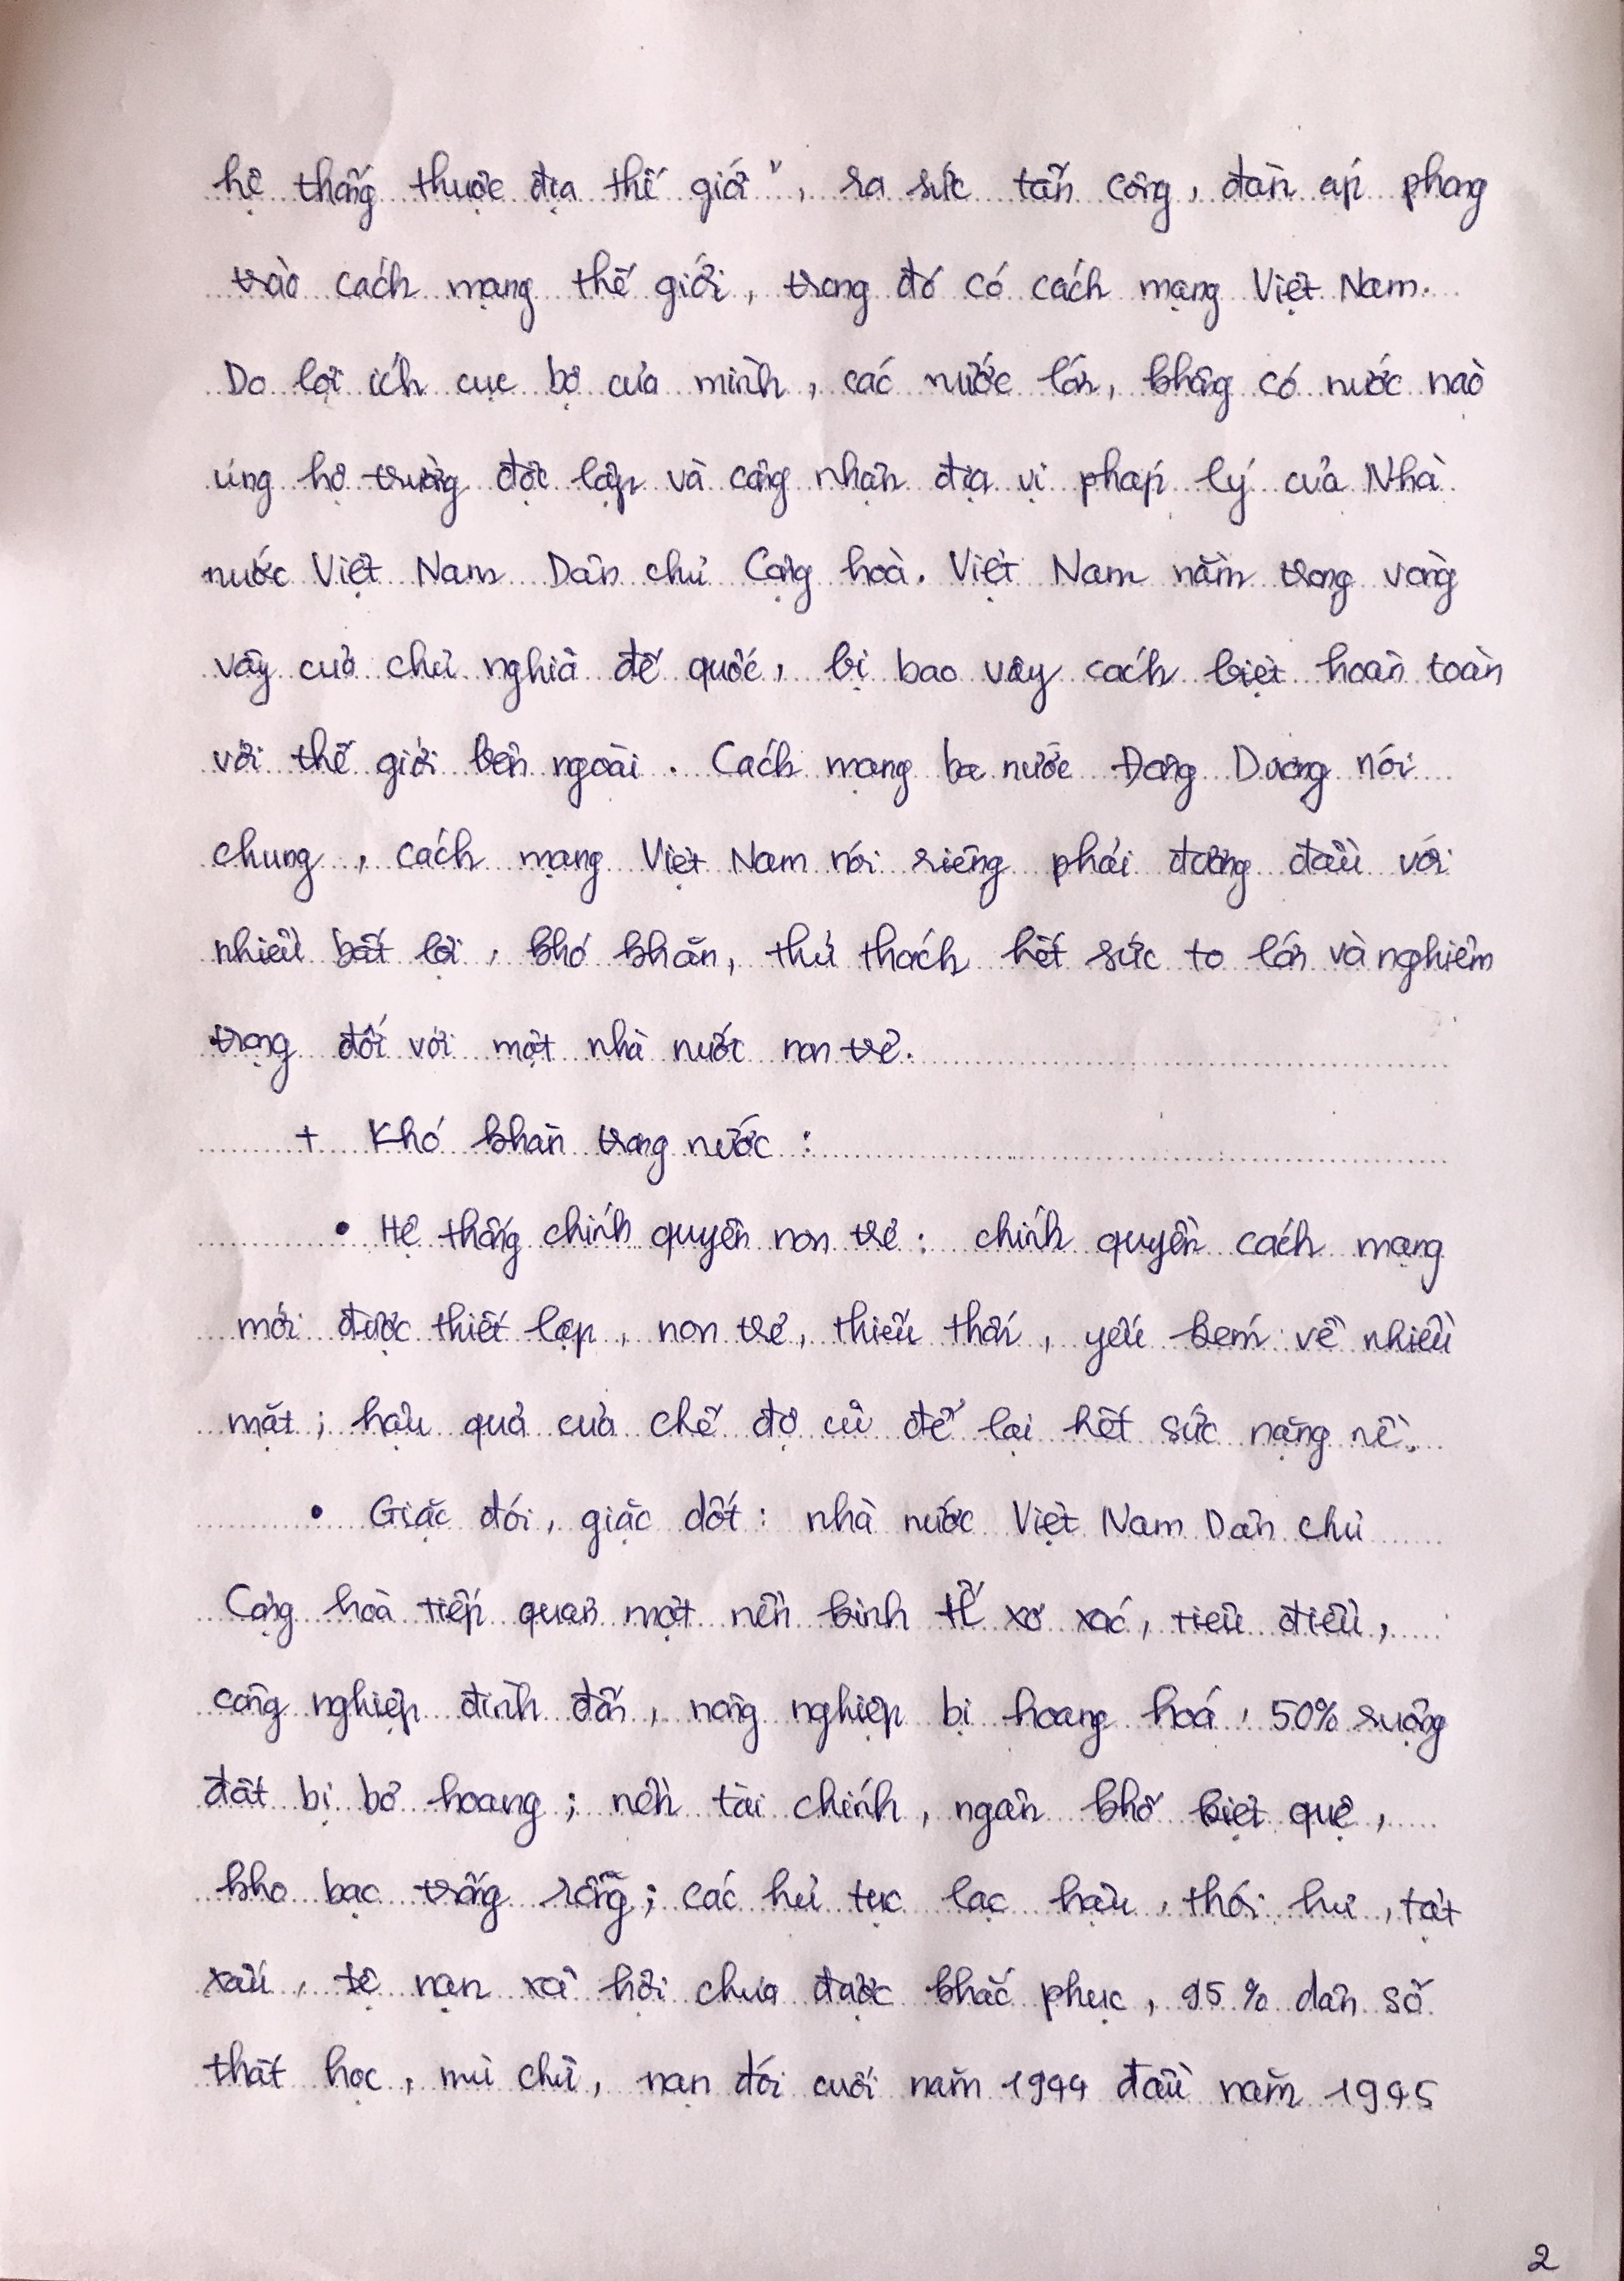 hệ thống thuộc địa thế giới", ra sức tấn công, đàn áp phong
trào cách mạng thế giới, trong đó có cách mạng Việt Nam.
Do lợi ích cục bộ của mình, các nước lớn, không có nước nào
ủng hộ trường độc lập và công nhận địa vị pháp lý của Nhà
nước Việt Nam Dân chủ Cộng hoà. Việt Nam nằm trong vòng
vây của chủ nghĩa đế quốc, bị bao vây cách biệt hoàn toàn
với thế giới bên ngoài. Cách mạng ba nước Đông Dương nói
chung, cách mạng Việt Nam nói riêng phải đương đầu với
nhiều bất lợi, khó khăn, thử thách hết sức to lớn và nghiêm
trọng đối với một nhà nước non trẻ.
+ Khó khăn trong nước :
• Hệ thống chính quyền non trẻ : chính quyền cách mạng
mới được thiết lập, non trẻ, thiếu thốn, yếu kém về nhiều
mặt ; hậu quả của chế độ cũ để lại hết sức nặng nề.
• Giặc đói, giặc dốt : nhà nước Việt Nam Dân chủ
Cộng hoà tiếp quản một nền kinh tế xơ xác, tiêu điều,
công nghiệp đình đốn, nông nghiệp bị hoang hoá, 50% ruộng
đất bị bỏ hoang ; nền tài chính, ngân khố kiệt quệ,
kho bạc trống rỗng ; các hủ tục lạc hậu, thói hư, tật
xấu, tệ nạn xã hội chưa được khắc phục, 95% dân số
thất học, mù chữ, nạn đói cuối năm 1944 đầu năm 1945
2